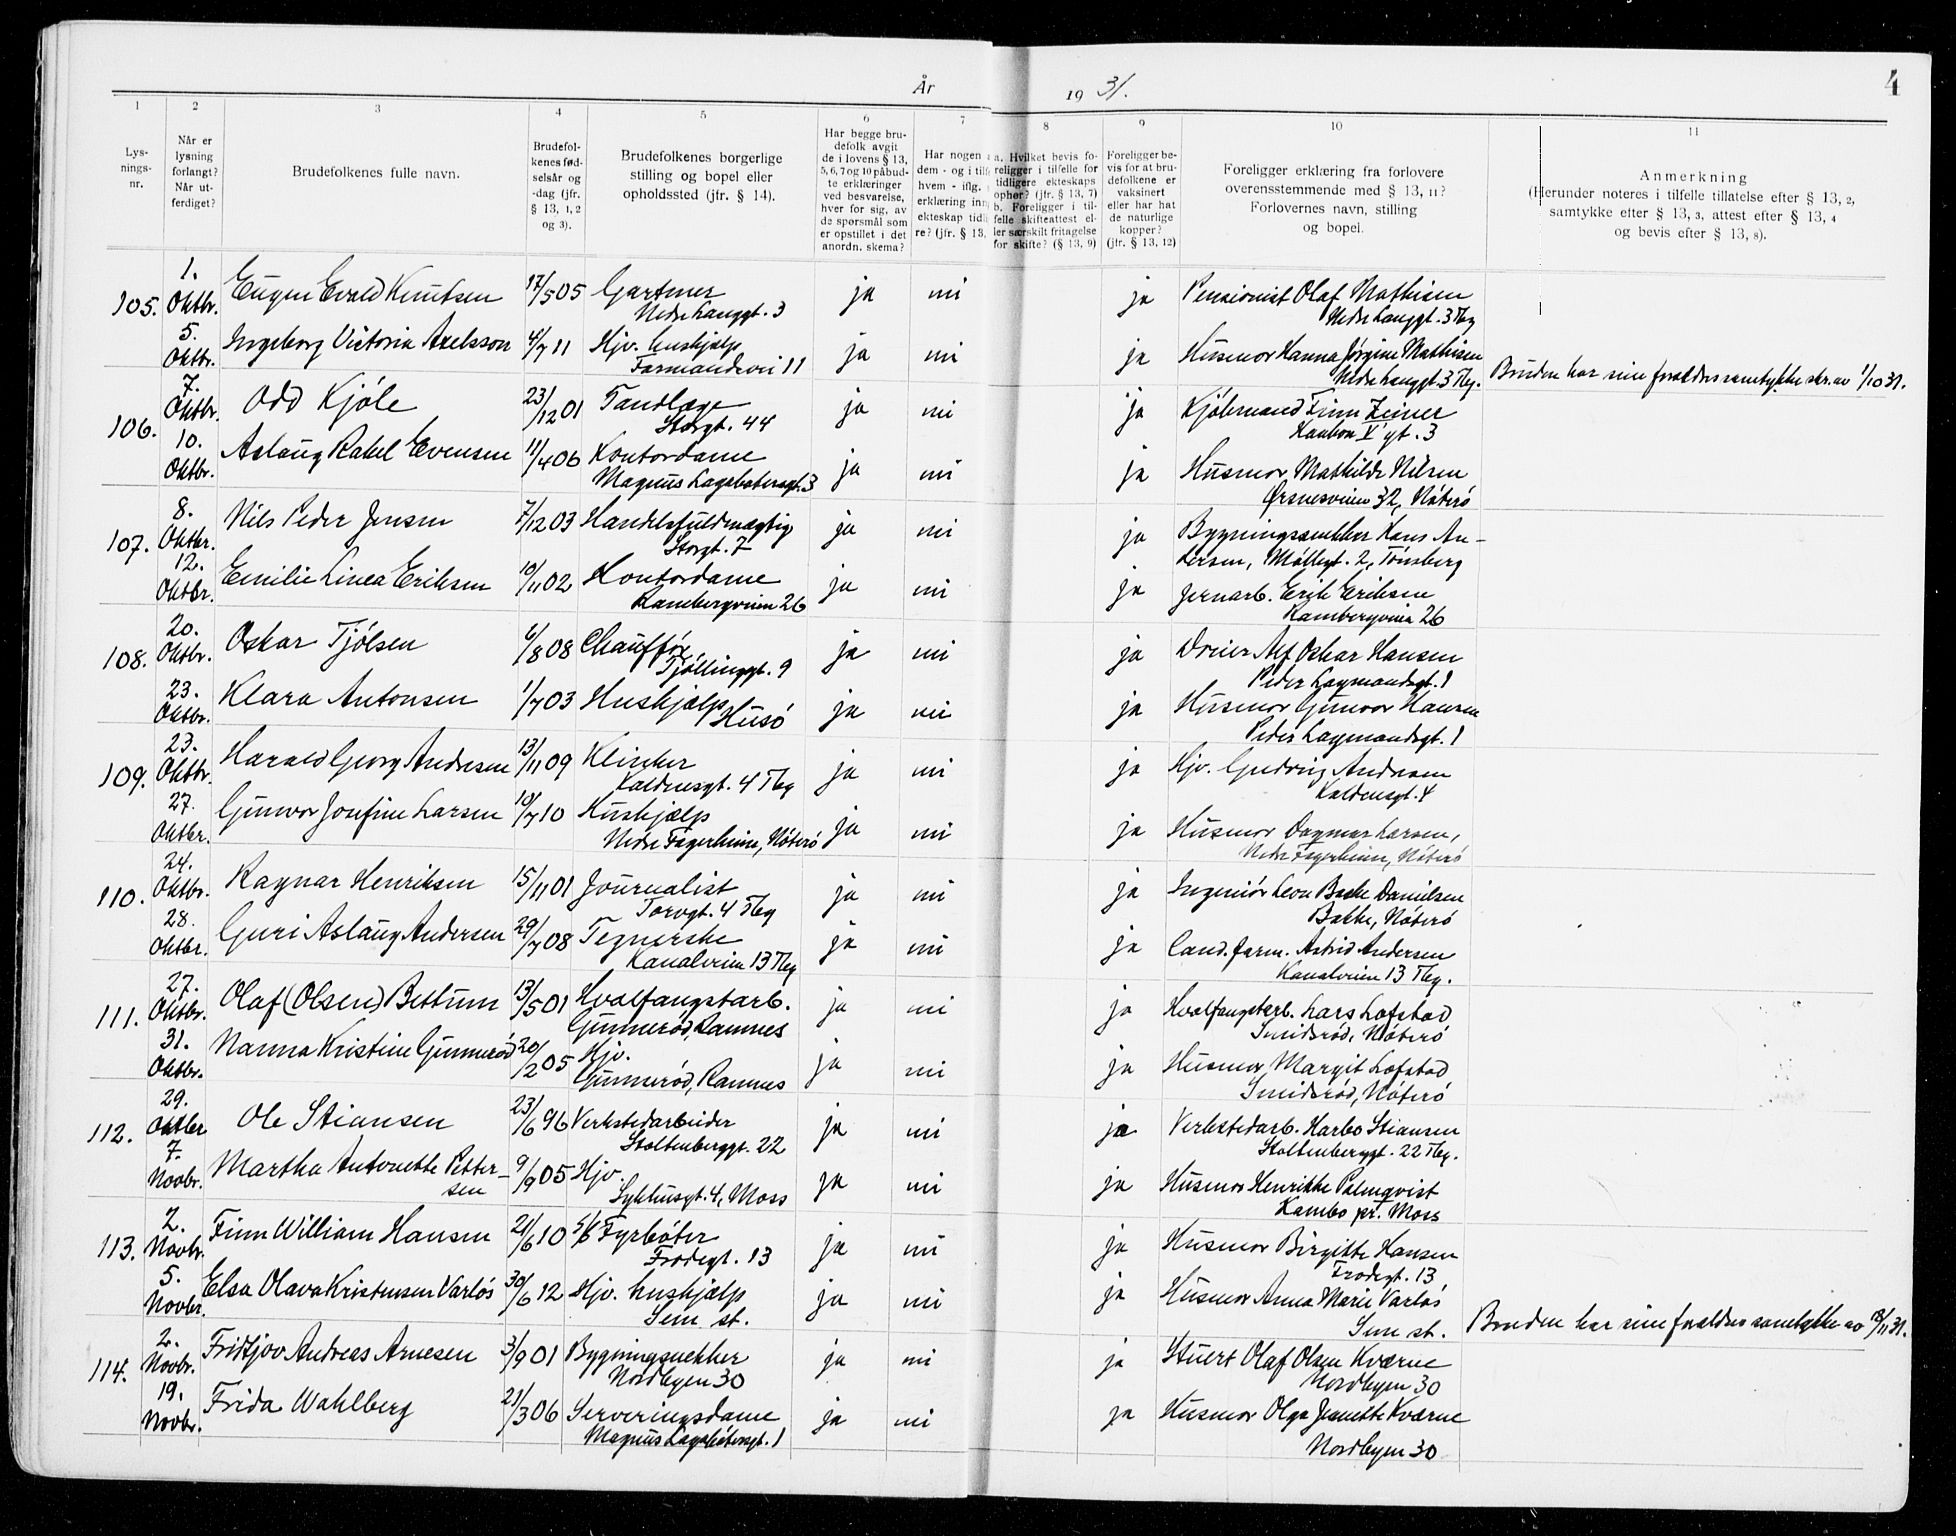 År 1931.
4
1 2 3 4 5 6 7 8 9 10 11
Lys-
nings-
nr.
Når er
lysning
forlangt?
Når ut-
ferdiget?
Brudefolkenes fulle navn.
Brudefol-
kenes fød-
selsår og
-dag (jfr.
§ 13, 1, 2
og 3).
Brudefolkenes borgerlige
stilling og bopel eller
opholdssted (jfr. § 14).
Har begge bru-
defolk avgit
de i lovens § 13,
5, 6, 7 og 10 påbud-
te erklæringer
ved besvarelse,
hver for sig, av
de spørsmål som
er opstillet i det
anordn. skema?
Har nogen
dem - og i tilf
hvem - iflg.
erklæring inn
ekteskap tidl
re? (jfr. § 13,
a. Hvilket bevis fo-
religger i tilfelle for
tidligere ekteskaps
ophør? (jfr. § 13, 7)
b. Foreligger i til-
felle skifteattest el-
ler særskilt fritagelse
for skifte? (§ 13, 9)
Foreligger be-
vis for at bru-
defolkene er
vaksinert
eller har hat
de naturlige
kopper?
(jfr. § 13, 12)
Foreligger erklæring fra forlovere
overensstemmende med § 13, 11?
Forlovernes navn, stilling
og bopel.
Anmerkning
(Herunder noteres i tilfelle tillatelse efter § 13, 2,
samtykke efter § 13, 3, attest efter § 13, 4
og bevis efter § 13, 8).
105. 1. Oktbr. Eugen Evald Knutsen 17/5 05 Gartner ja nei ja Pensionist Olaf Mathisen
Nedre Langgt. 3 Nedre Langgt. 3 Tbg
5. Oktbr. Ingeborg Victoria Axelsson 4/7 11 Hjv. hushjælp ja nei ja Husmor Hanna Jørgine Mathisen
Farmandsvei 11 Nedre Langgt. 3 Tbg. Bruden har sine forældres samtykke skr. av 1/10 31.
106. 7. Oktbr. Odd Kjøle 23/12 01 Tandlæge ja nei ja Kjøbmand Finn Zeiner
Storgt. 44 Haakon V' gt. 3
10. Oktbr. Aslaug Rakel Evensen 11/4 06 Kontordame ja nei ja Husmor Mathilde Nilsen
Magnus Lagabøtersgt. 3 Ørsnesveien 32, Nøterø
107. 8. Oktbr. Nils Peder Jensen 7/12 03 Handelsfuldmægtig ja nei ja Bygningssnekker Hans An-
Storgt. 7 dersen, Møllegt. 2, Tønsberg
12. Oktbr. Emilie Linea Eriksen 10/11 02 Kontordame ja nei ja Jernarb. Erik Eriksen
Rambergveien 26 Rambergveien 26
108. 20. Oktbr. Oskar Tjølsen 6/8 08 Chauffør ja nei ja Dreier Alf Oskar Hansen
Tjøllinggt. 9 Peder Lagmandsgt. 1
23. Oktbr. Klara Antonsen 1/7 03 Hushjælp ja nei ja Husmor Gunvor Hansen
Husø Peder Lagmandsgt. 1
109. 23. Oktbr. Harald Georg Andresen 13/11 09 Klinker ja nei ja Hjv. Gudrun Andresen
Kaldnesgt. 4 Tbg Kaldnesgt. 4
27. Oktbr. Gunvor Josefine Larsen 10/7 10 Hushjælp ja nei ja Husmor Dagmar Larsen,
Nedre Fagerheim, Nøterø Nedre Fagerheim, Nøterø
110. 24. Oktbr. Ragnar Henriksen 15/11 01 Journalist ja nei ja Ingeniør Leon Bache Danielsen
Torvgt. 4 Tbg Bakke, Nøterø
28. Oktbr. Guri Aslaug Andersen 29/7 08 Tegnerske ja nei ja Cand. farm. Astrid Andersen
Kanalveien 13 Tbg Kanalveien 13 Tbg.
111. 27. Oktbr. Olaf (Olsen) Bettum 13/5 01 Hvalfangstarb. ja nei ja Hvalfangstarb. Lars Lofstad
Gunnerød, Ramnes Smidsrød, Nøterø
31. Oktbr. Nanna Kristine Gunnerød 20/2 05 Hjv. ja nei ja Husmor Margit Lofstad
Gunnerød, Ramnes Smidsrød, Nøterø
112. 29. Oktbr Ole Stiansen 23/6 96 Verkstedarbeider ja nei ja Verkstedarb. Harbo Stiansen
Stoltenberggt. 22 Stoltenberggt. 22 Tbg.
7. Novbr. Martha Antonette Petter- 9/9 05 Hjv. ja nei ja Husmor Henrikke Palmqvist
sen Sykhusgt. 4, Moss Kambo pr. Moss
113. 2. Novbr. Finn William Hansen 21/6 10 Fyrbøter ja nei ja Husmor Birgitte Hansen
Frodegt. 13 Frodegt. 13
5. Novbr. Elsa Olava Kristensen Varløs 30/6 12 Hjv. hushjælp ja nei ja Husmor Anna Marie Varløs
Sem st. Sem st. Bruden har sine forældres samtykke av /11 31.
114. 2. Novbr. Fridtjov Andreas Arnesen 3/9 01 Bygningsnekker ja nei ja Stuert Olaf Olsen Kværne
Nordbyen 30 Nordbyen 30
19. Novbr. Frida Wahlberg 21/3 06 Serveringsdame ja nei ja Husmor Olga Jeanette Kværne
Magnus Lagabøtersgt. 1 Nordbyen 30